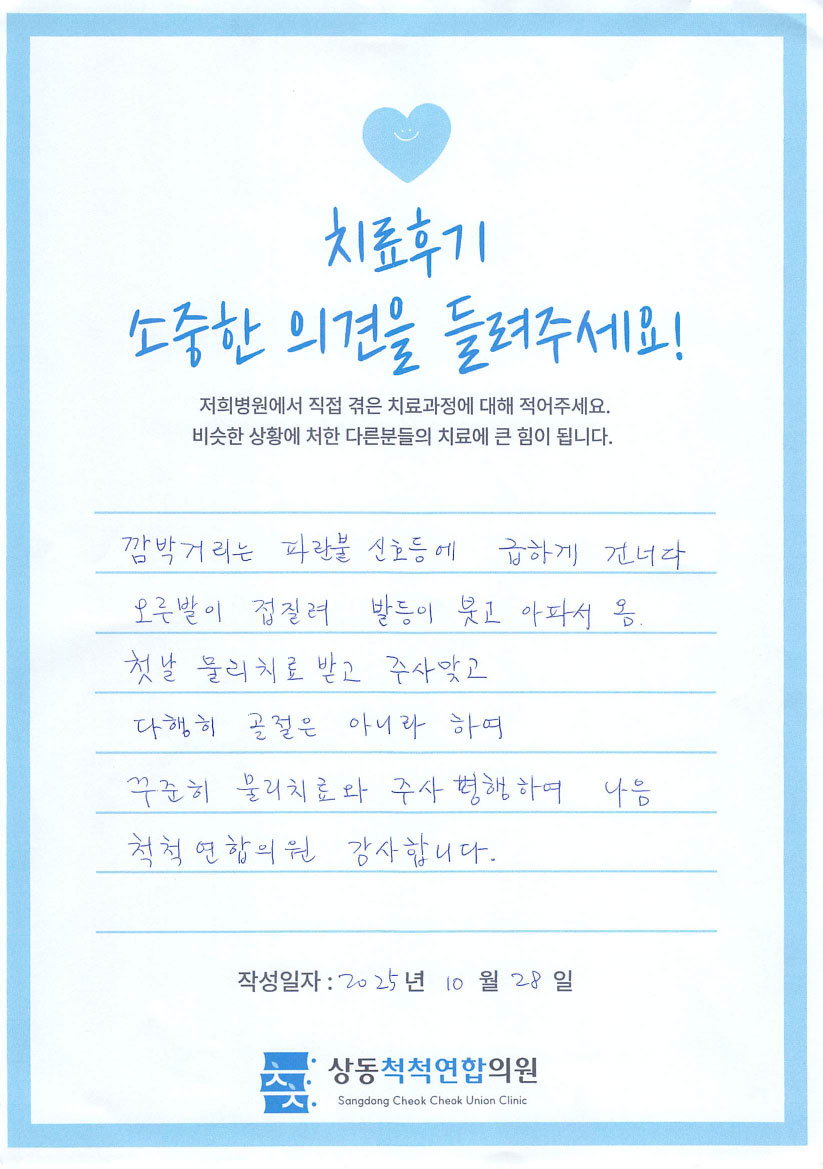 치료후기
소중한 의견을 들려주세요!
저희병원에서 직접 겪은 치료과정에 대해 적어주세요.
비슷한 상황에 처한 다른분들의 치료에 큰 힘이 됩니다.
깜박거리는 파란불 신호등에 급하게 건너다
오른발이 접질려 발등이 붓고 아파서 옴.
첫날 물리치료받고 주사맞고
다행히 골절은 아니라 하여
꾸준히 물리치료와 주사 병행하여 나음
척척연합의원 감사합니다.
작성일자 : 2025년 10월 28일
상동척척연합의원
Sangdong Cheok Cheok Union Clinic